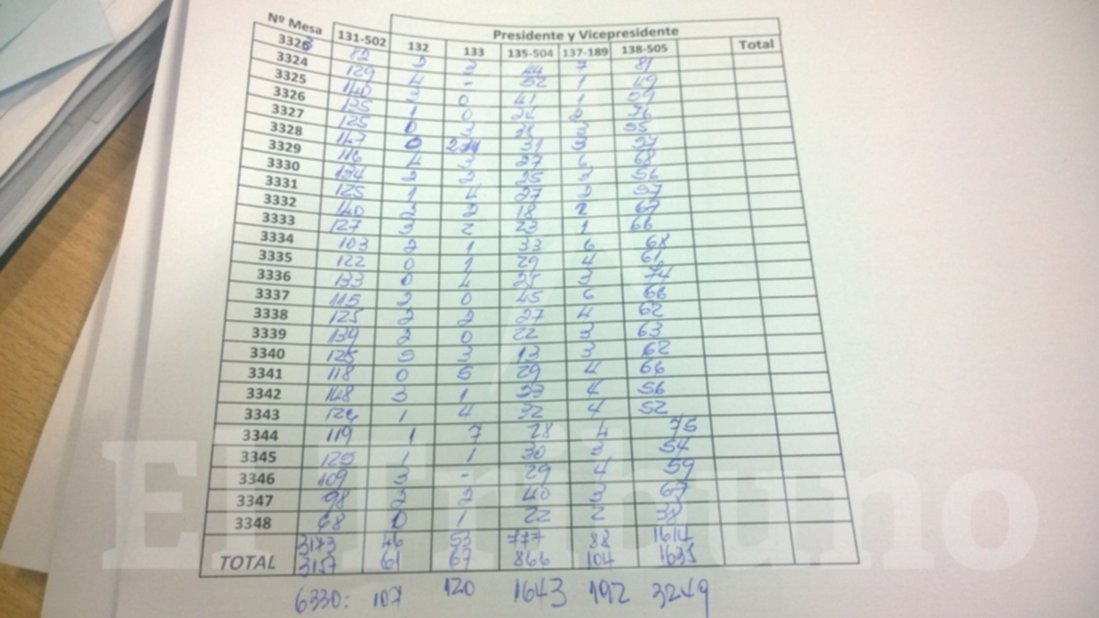 Nº Mesa 131-502 Presidente y Vicepresidente
132 133 135-504 137-189 138-505 Total
3323 82 2 3 44 7 81
3324 129 4 - 52 1 49
3325 140 3 0 41 1 59
3326 135 1 0 2 76
3327 125 0 3 38 3 55
3328 147 0 31 3 57
3329 116 4 3 27 6 68
3330 134 2 2 25 2 56
3331 125 1 4 27 2 57
3332 140 2 2 18 2 67
3333 127 3 2 23 1 66
3334 103 2 1 33 6 68
3335 122 0 1 29 4 61
3336 133 0 4 25 3 74
3337 115 2 0 45 6 66
3338 125 2 2 27 4 62
3339 139 2 0 22 3 63
3340 125 5 3 13 3 62
3341 118 0 5 29 4 66
3342 148 3 1 33 4 56
3343 1 4 32 4 52
3344 119 1 7 28 4 75
3345 125 1 1 30 3 54
3346 109 3 - 29 4 59
3347 98 3 2 40 3 67
3348 68 0 1 22 2 38
3173 46 53 777 88 1614
TOTAL 3157 61 67 866 104 1635
6330: 107 120 1643 192 3249
El Tribuno